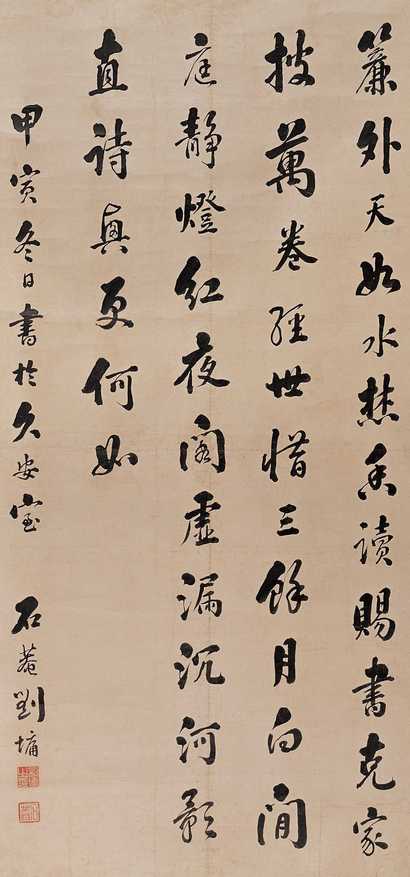 簾外天如水焚香讀賜書克家
披萬卷經世惜三餘月白閒
庭靜燈紅夜閣虛漏沉河影
直詩興更何如
甲寅冬日書於久安室
石菴劉墉